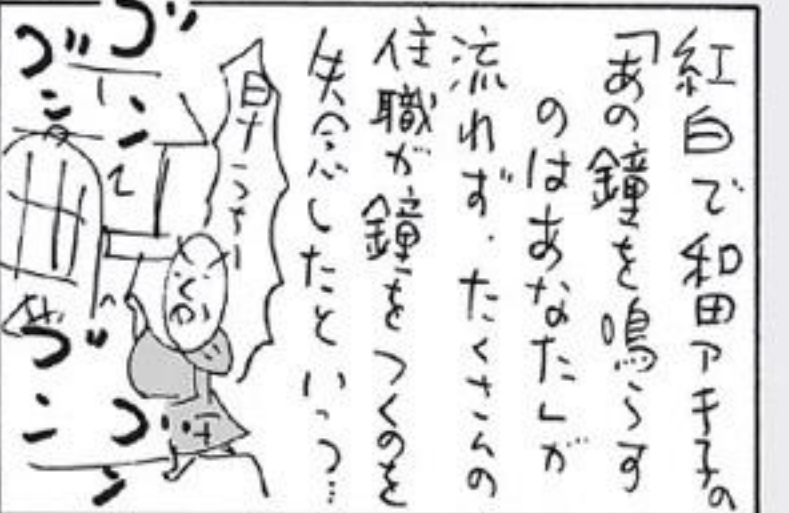 紅白で和田アキ子の
「あの鐘を鳴らす
のはあなた」が
流れず、たくさんの
住職が鐘をつくのを
失念したといっつ…
ゴーン
ゴーン
ゴーン